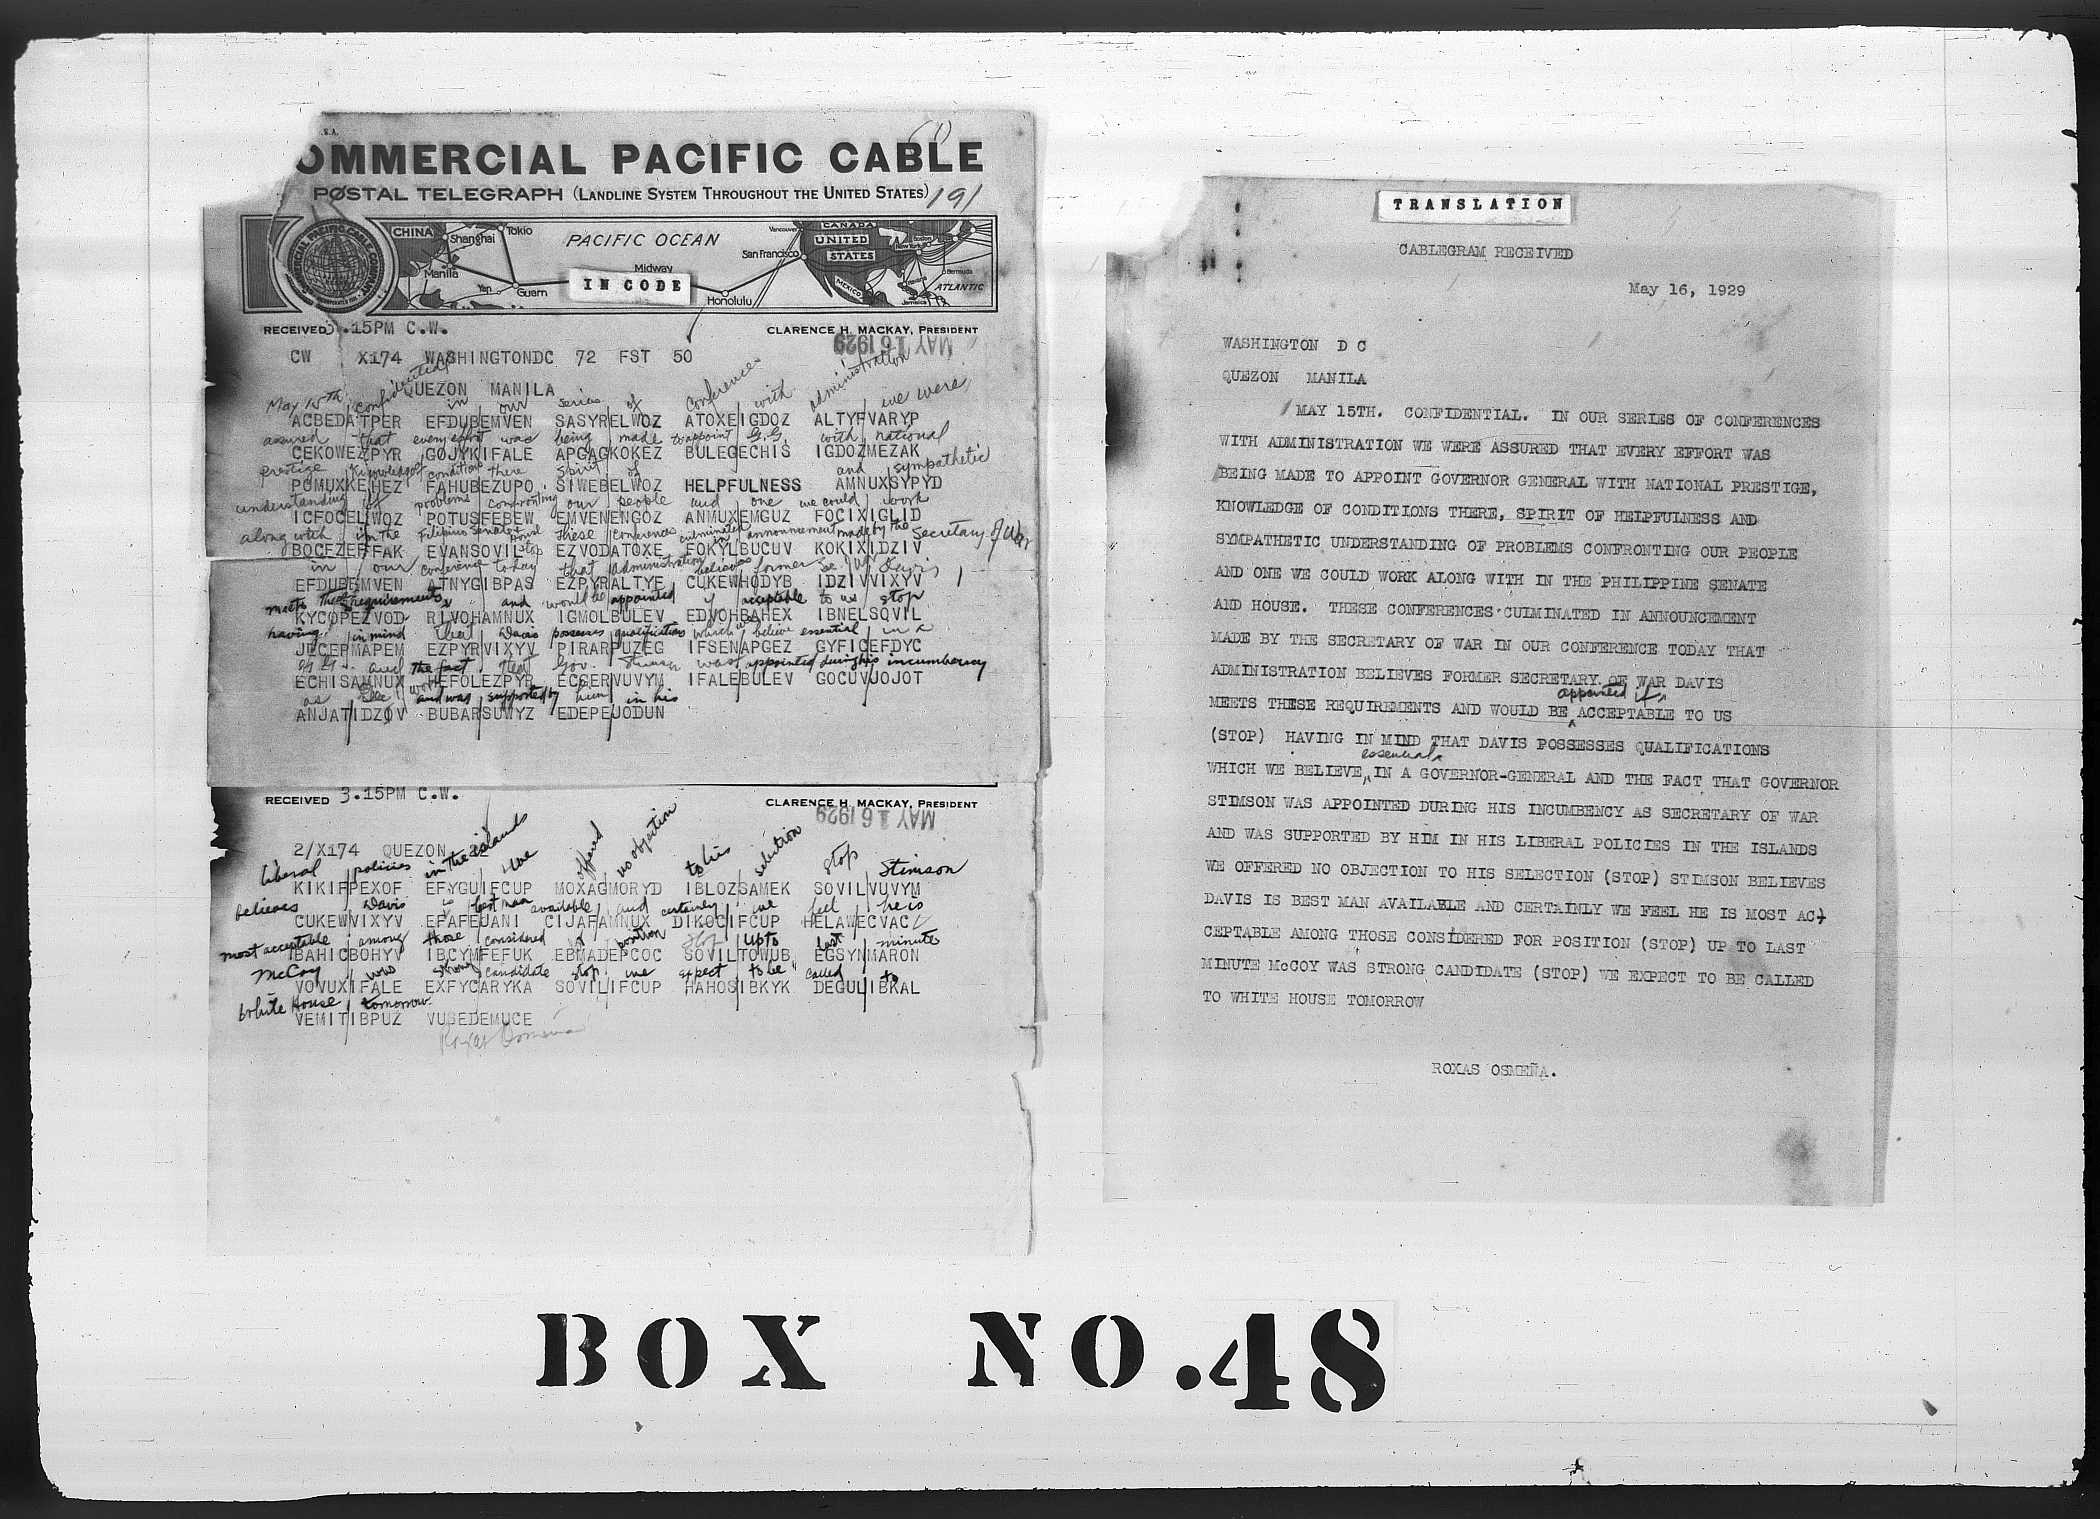 OMMERCIAL PACIFIC CABLE
POSTAL TELEGRAPH (LANDLINE SYSTEM THROUGHOUT THE UNITED STATES)
191
CHINA
Shanghai
Tokio
PACIFIC OCEAN
Vancouver
CANADA
UNITED
STATES
San Francisco
Manila
Midway
Yap
Guam
IN CODE
Honolulu
MEXICO
Bermuda
ATLANTIC
RECEIVED 3.15PM C.W.
CLARENCE H. MACKAY, PRESIDENT
MAY 16 1929
CW X174 WASHINGTONDC 72 FST 50
QUEZON MANILA
May 15th confidential in our series of conferences with administration we were
ACBEDATPER EFDUBEMVEN SASYRELWOZ ATOXEIGDOZ ALTYFVARYP
assured that every effort was being made to appoint G.G. with national
CEKOWEZPYR GOJYKIFALE APGAGKOKEZ BULEGECHIS IGDOZMEZAK
prestige knowledge of conditions there spirit of and sympathetic
POMUXKEHEZ FAHUBEZUPO SIWEBELWOZ HELPFULNESS AMNUXSYPYD
understanding of problems confronting our people and one we could work
ICFOCELWOZ POTUSFEBEW EMVENENGOZ ANMUXEMGUZ FOCIXIGLID
along with in the Filipino Senate House stop these conferences culminated in announcement made by the Secretary of War
BOCFZEFFAK EVANSOVIL EZVODATOXE FOKYLBUCUV KOKIXIDZIV
in our conference today that administration believes former Sec War Davis
EFDUBEMVEN ATNYGIBPAS EZPYRALTYF CUKEWHODYB IDZIVVIXYV
meets these requirements and would be appointed if acceptable to us stop
KYCOPEZVOD RIVOHAMNUX IGMOLBULEV EDVOHBAHEX IBNELSOVIL
having in mind that Davis possesses qualifications which we believe essential in a
JECEPMAPEM EZPYRVIXYV PIRARPUZEG IFSENAPGEZ GYFICEFDYC
G.G. and the fact that Gov. Stimson was appointed during his incumbency
ECHISAMNUX HEFOLEZPYR ECSERVUVYM IFALEBULEV GOCUVJOJOT
as Sec War and was supported by him in his
ANJATIDZOV BUBARSUWYZ EDEPEJODUN
RECEIVED 3.15PM C.W.
CLARENCE H. MACKAY, PRESIDENT
MAY 16 1929
2/X174 QUEZON 22
liberal policies in the islands we offered no objection to his selection stop Stimson
KIKIFPEXOF EFYGUIFCUP MOXAGMORYD IBLOZSAMEK SOVILVUVYM
believes Davis is best man available and certainly we feel he is
CUKEWVIXYV EFAFEJANI CIJAFAMNUX DIKOCIFCUP HELAWECVAC
most acceptable among those considered for position stop up to last minute
IBAHICBOHYV IBCYMFEFUK EBMADEPCOC SOVILTOWUB EGSYNMARON
McCoy was strong candidate stop we expect to be called to
VOVUXIFALE EXFYCARYKA SOVILIFCUP HAHOSIBKYK DEGULIBKAL
White House tomorrow
VEMITIBPUZ VUSEDEMUCE
Roxas Osmeña
TRANSLATION
CABLEGRAM RECEIVED
May 16, 1929
WASHINGTON D C
QUEZON MANILA
MAY 15TH. CONFIDENTIAL. IN OUR SERIES OF CONFERENCES
WITH ADMINISTRATION WE WERE ASSURED THAT EVERY EFFORT WAS
BEING MADE TO APPOINT GOVERNOR GENERAL WITH NATIONAL PRESTIGE,
KNOWLEDGE OF CONDITIONS THERE, SPIRIT OF HELPFULNESS AND
SYMPATHETIC UNDERSTANDING OF PROBLEMS CONFRONTING OUR PEOPLE
AND ONE WE COULD WORK ALONG WITH IN THE PHILIPPINE SENATE
AND HOUSE. THESE CONFERENCES CULMINATED IN ANNOUNCEMENT
MADE BY THE SECRETARY OF WAR IN OUR CONFERENCE TODAY THAT
ADMINISTRATION BELIEVES FORMER SECRETARY OF WAR DAVIS
appointed if
MEETS THESE REQUIREMENTS AND WOULD BE ACCEPTABLE TO US
(STOP) HAVING IN MIND THAT DAVIS POSSESSES QUALIFICATIONS
essential
WHICH WE BELIEVE, IN A GOVERNOR-GENERAL AND THE FACT THAT GOVERNOR
STIMSON WAS APPOINTED DURING HIS INCUMBENCY AS SECRETARY OF WAR
AND WAS SUPPORTED BY HIM IN HIS LIBERAL POLICIES IN THE ISLANDS
WE OFFERED NO OBJECTION TO HIS SELECTION (STOP) STIMSON BELIEVES
DAVIS IS BEST MAN AVAILABLE AND CERTAINLY WE FEEL HE IS MOST AC-
CEPTABLE AMONG THOSE CONSIDERED FOR POSITION (STOP) UP TO LAST
MINUTE McCOY WAS STRONG CANDIDATE (STOP) WE EXPECT TO BE CALLED
TO WHITE HOUSE TOMORROW
ROXAS OSMEÑA.
BOX NO.48